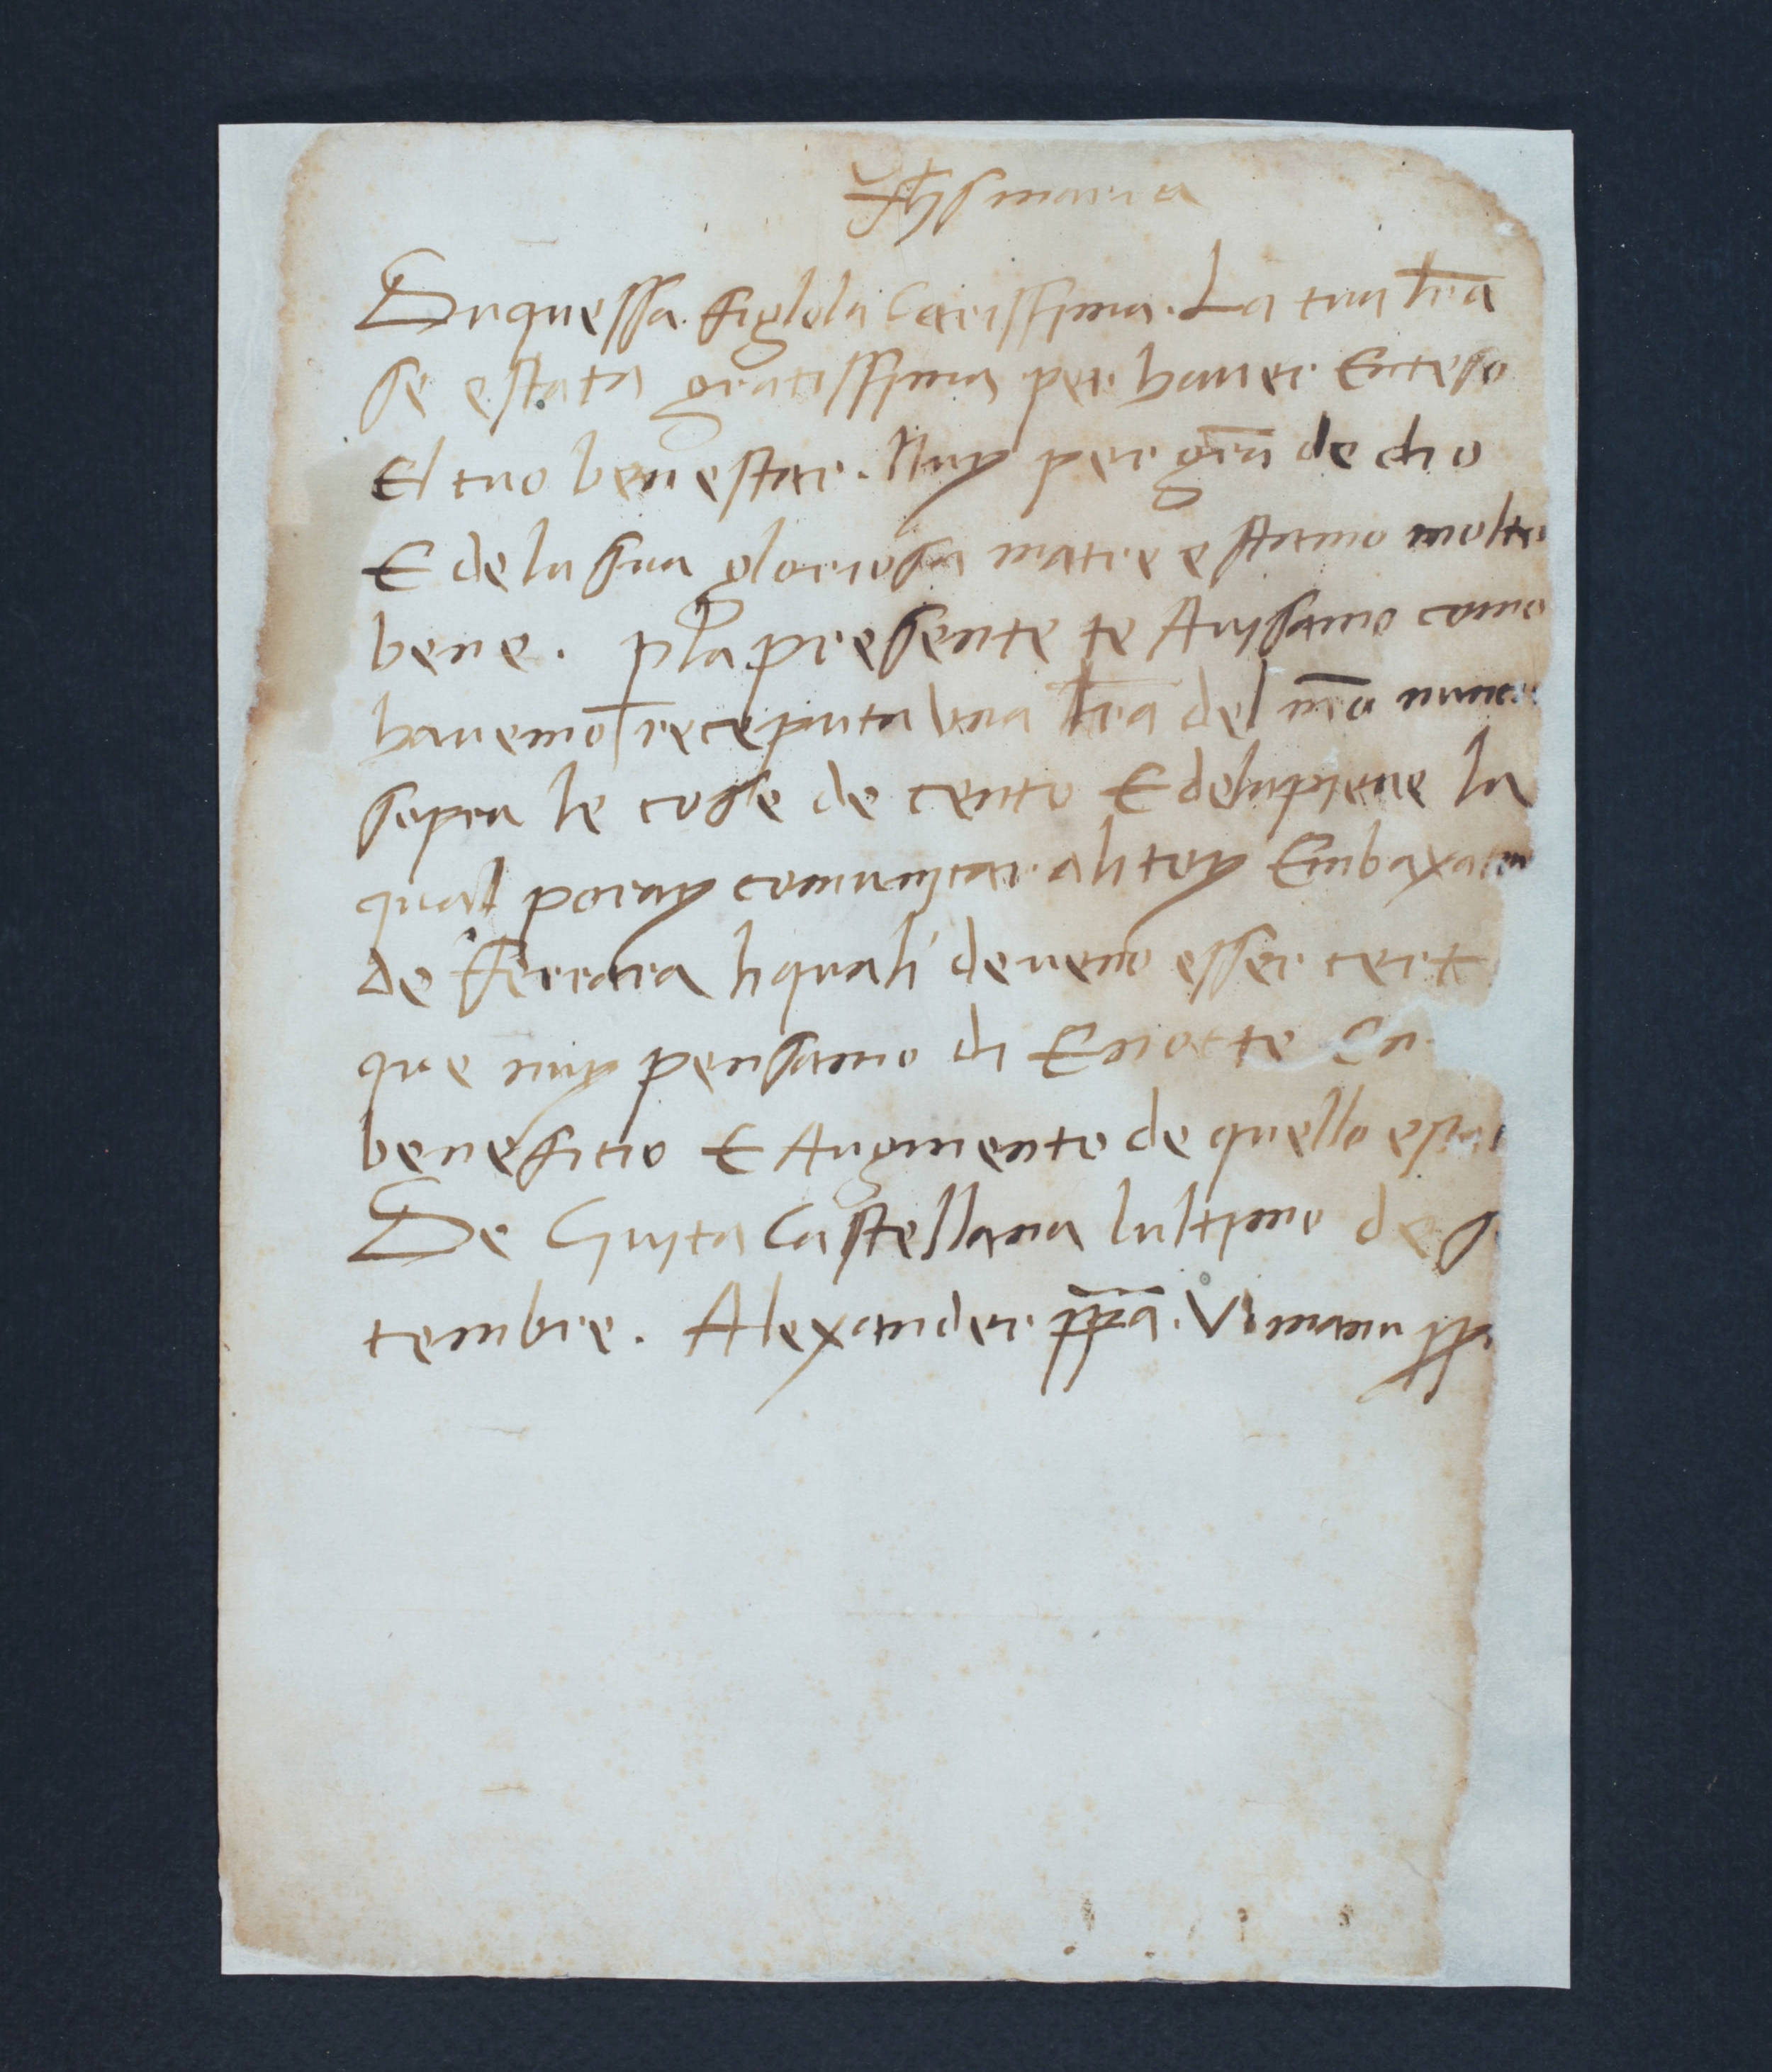 Jhs maria
Duquessa figlola Carissima. La tua lra
se estata gratissima per haver Enteso
El tuo ben estar. Nuy per gra de dio
E de la sua gloriosa matre estamo molto
bene. p la presente te Avisamo como
havemo receputa una lra del nro nuncio
sopra le cose de cento E de la pieve la
qual poray comunicar a li toy Embaxatori
de fferrara li quali deveno esser cert
que nuy pensamo di
beneficio E Augmento de quello
De Civita Castellana lultimo de s
tembre. Alexander ppa. VI manu pp